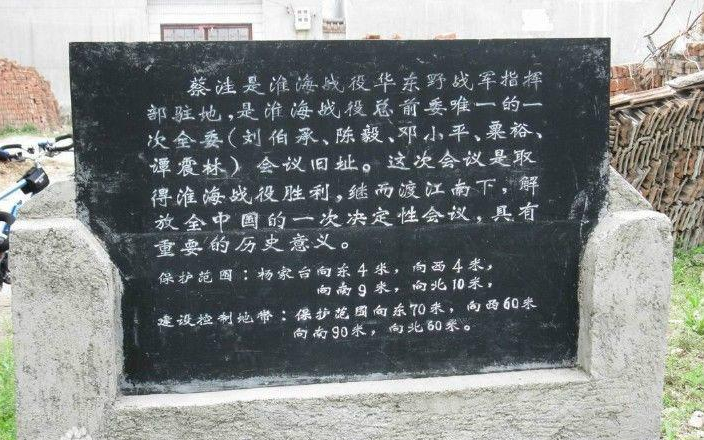 蔡洼是淮海战役华东野战军指挥
部驻地，是淮海战役总前委唯一的一
次全委（刘伯承、陈毅、邓小平、粟裕、
谭震林）会议旧址。这次会议是取
得淮海战役胜利，继而渡江南下，解
放全中国的一次决定性会议，具有
重要的历史意义。
保护范围：杨家台向东4米，向西4米，
向南9米，向北10米，
建设控制地带：保护范围向东70米，向西60米
向南90米，向北60米。